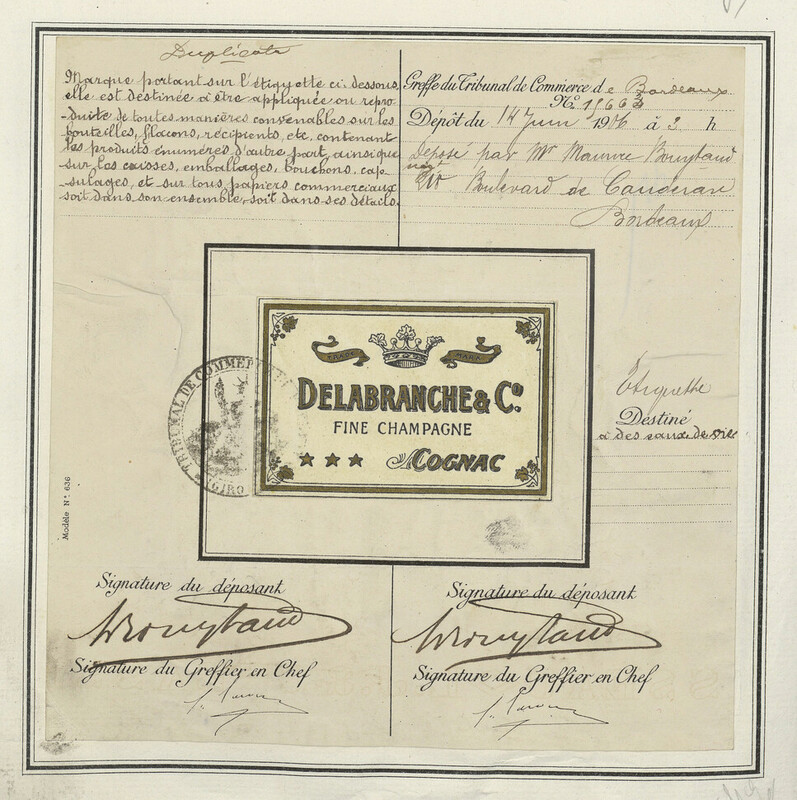 Duplicata
Marque portant sur l'étiquette ci-dessous,
elle est destinée à être appliquée ou repro-
-duite de toutes manières convenables sur les
bouteilles, flacons, récipients, etc. contenant
les produits énumérés d'autre part, ainsi que
sur les caisses, emballages, bouchons, cap-
-sulages, et sur tous papiers commerciaux
soit dans son ensemble, soit dans ses détails.
Greffe du Tribunal de Commerce de Bordeaux
Dépôt du 14 Juin 1906 à 3 h
Déposé par Mr Maurice
Boulevard de Caudéran
Bordeaux
TRADE MARK
DELABRANCHE & Co.
FINE CHAMPAGNE
★ ★ ★ COGNAC
TRIBUNAL DE COMMERCE
Étiquette
Destiné
à des eaux-de-vie
Modèle No. 636
Signature du déposant
Signature du Greffier en Chef
Signature du déposant
Signature du Greffier en Chef